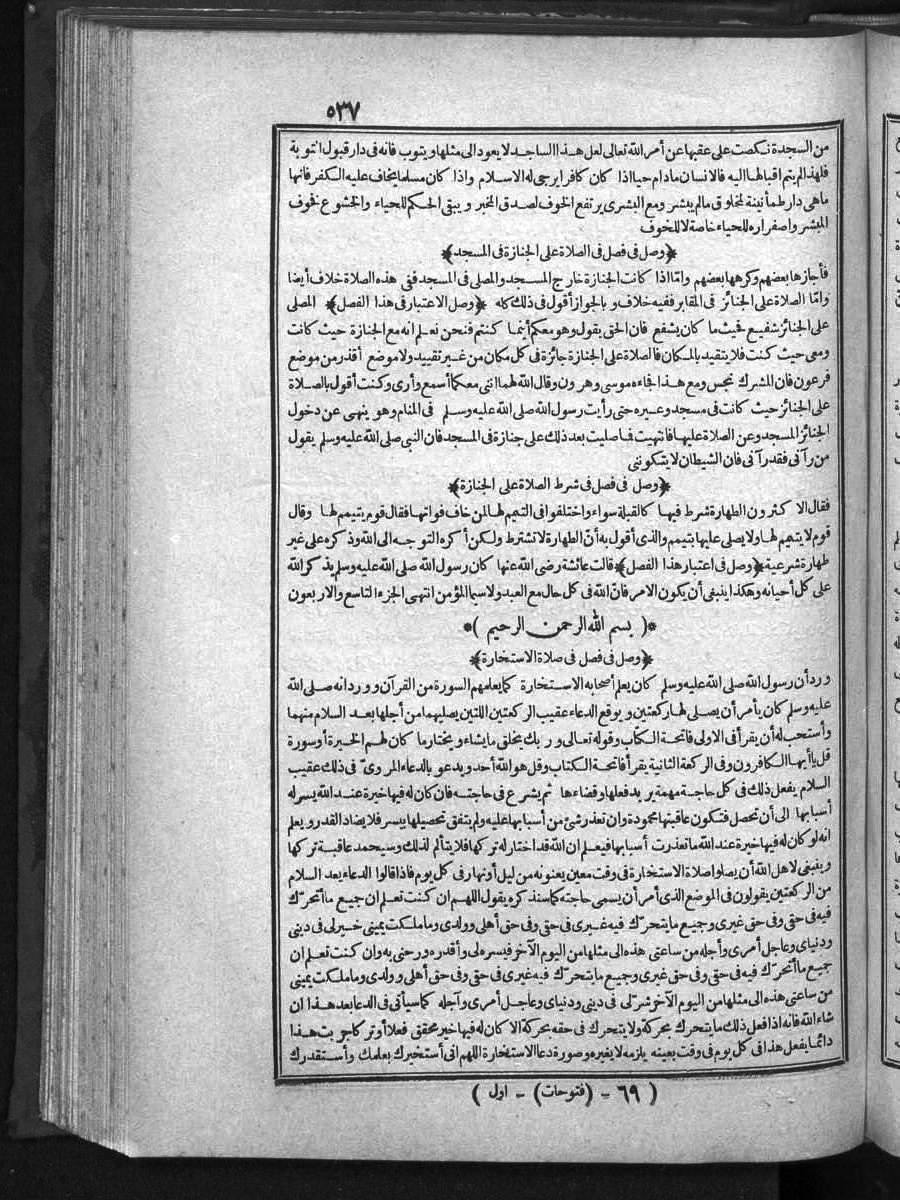 ٥٣٧
من السجدة نكصت على عقبها عن أمر الله تعالى لعل هذا الساجد لا يعود الى مثلها ويتوب فانه فى دار قبول التوبة
فلهذا لم يتم اقبالها اليه فالانسان مادام حيا اذا كان كافرا يرجى له الاسلام واذا كان مسلما يخاف عليه الكفر فانها
ماهى دار طمأنينة لمخلوق مالم يبشر ومع البشرى يرتفع الخوف لصدق المخبر ويبقى الحكم للحياء والخشوع فخوف
المبشر واصفراره للحياء خاصة لا للخوف
﴿وصل فى فصل فى الصلاة على الجنازة فى المسجد﴾
فأجازها بعضهم وكرهها بعضهم وامّا اذا كانت الجنازة خارج المسجد والمصلى فى المسجد ففى هذه الصلاة خلاف أيضا
وامّا الصلاة على الجنائز فى المقابر ففيه خلاف وبالجواز أقول فى ذلك كله ﴿وصل الاعتبار فى هذا الفصل﴾ المصلى
على الجنائز شفيع فحيث ما كان يشفع فان الحق يقول وهو معكم أينما كنتم فنحن نعلم انه مع الجنازة حيث كانت
ومعى حيث كنت فلا يتقيد بالمكان فالصلاة على الجنازة جائزة فى كل مكان من غير تقييد ولا موضع أقذر من موضع
فرعون فان المشرك نجس ومع هذا الجاءه موسى وهرون وقال الله لهما اننى معكما أسمع وأرى وكنت أقول بالصلاة
على الجنائز حيث كانت فى مسجد وغيره حتى رأيت رسول الله صلى الله عليه وسلم فى المنام وهو ينهى عن دخول
الجنائز المسجد وعن الصلاة عليها فانتهيت فما صليت بعد ذلك على جنازة فى المسجد فان النبى صلى الله عليه وسلم يقول
من رآنى فقد رآنى فان الشيطان لا يتكوننى
﴿وصل فى فصل فى شرط الصلاة على الجنازة﴾
فقال الاكثرون الطهارة شرط فيها كالقبلة سواء واختلفوا فى التيمم لها لمن خاف فواتها فقال قوم يتيمم لها وقال
قوم لا يتيمم لها ولا يصلى عليها بتيمم والذى أقول به أنّ الطهارة لا تشترط ولكن أكره التوجه الى الله وذكره على غير
طهارة شرعية ﴿وصل فى اعتبار هذا الفصل﴾ قالت عائشة رضى الله عنها كان رسول الله صلى الله عليه وسلم يذكر الله
على كل أحيانه وهكذا ينبغى أن يكون الامر فانّ الله فى كل حال مع العبد ولا سيما المؤمن انتهى الجزء التاسع والاربعون
*( بسم الله الرحمن الرحيم )*
﴿وصل فى فصل فى صلاة الاستخارة﴾
ورد أن رسول الله صلى الله عليه وسلم كان يعلم أصحابه الاستخارة كما يعلمهم السورة من القرآن وورد انه صلى الله
عليه وسلم كان يأمر أن يصلى لها ركعتين ويوقع الدعاء عقيب الركعتين اللتين يصليهما من أجلها بعد السلام منهما
وأستحب له أن يقرأ فى الاولى فاتحة الكتاب وقوله تعالى وربك يخلق ما يشاء ويختار ما كان لهم الخيرة أو سورة
قل ياأيها الكافرون وفى الركعة الثانية يقرأ فاتحة الكتاب وقل هو الله أحد ويدعو بالدعاء المروىّ فى ذلك عقيب
السلام يفعل ذلك فى كل حاجة مهمة يريد فعلها وقضاءها ثم يشرع فى حاجته فان كان له فيها خيرة عند الله يسر له
أسبابها الى أن تحصل فتكون عاقبتها محمودة وان تعذر شئ من أسبابها عليه ولم يتفق تحصيلها بيسر فلا يضاد القدر ويعلم
انه لو كان له فيها خيرة عند الله ما تعذرت أسبابها فيعلم ان الله قد اختار له تركها فلا يتألم لذلك وسيحمد عاقبة تركها
وينبغى لاهل الله أن يصلوا صلاة الاستخارة فى وقت معين يعنونه من ليل أو نهار فى كل يوم فاذا قالوا الدعاء بعد السلام
من الركعتين يقولون فى الموضع الذى أمر أن يسمى حاجته كما سنذكره يقول اللهم ان كنت تعلم ان جميع ما أتحرّك
فيه فى حقى وفى حق غيرى وجميع ما يتحرّك فيه غيرى فى حقى وفى حق أهلى وولدى وما ملكت يمينى خير لى فى دينى
ودنياى وعاجل أمرى وأجله من ساعتى هذه الى مثلها من اليوم الآخر فيسره لى وأقدره ورضنى به وان كنت تعلم ان
جميع ما أتحرّك فيه فى حقى وفى حق غيرى وجميع ما يتحرّك فيه غيرى فى حقى وفى حق أهلى وولدى وما ملكت يمينى
من ساعتى هذه الى مثلها من اليوم الآخر شرّ لى فى دينى ودنياى وعاجل أمرى وآجله كما سيأتى فى الدعا بعد هذا ان
شاء الله فانه اذا فعل ذلك ما يتحرك بحركة ولا يتحرك فى حقه بحركة الا كان له فيها خير محقق فعلا أو تركا جربت هذا
دائما يفعل هذا فى كل يوم فى وقت بعينه يلزمه لا يغيره وصورة دعا الاستخارة اللهم انى أستخيرك بعلمك وأستقدرك
( ٦٩ - (فتوحات) - اول )